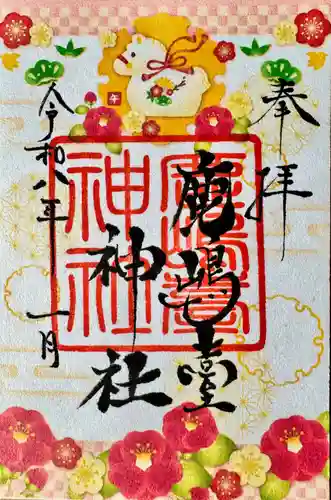 奉拝
鹿嶋臺
神社
令和八年 一月
午
鹿嶋臺
神社